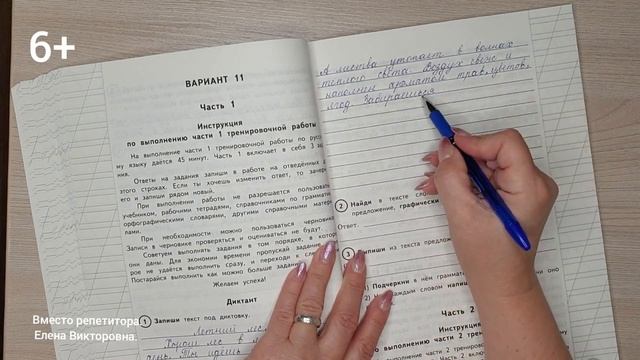 6+
ВАРИАНТ 11
Часть 1
Инструкция
по выполнению части 1 тренировочной работы
На выполнение части 1 тренировочной работы по рус
му языку даётся 45 минут. Часть 1 включает в себя 3 за
Ответы на задания запиши в работе на отведённых
этого строках. Если ты хочешь изменить ответ, то зачер
его и запиши рядом новый.
При выполнении работы не разрешается пользова
учебником, рабочими тетрадями, справочниками по граммати
орфографическими словарями, другими справочными матер
При необходимости можно пользоваться чернови
Записи в черновике проверяться и оцениваться не будут.
Советуем выполнять задания в том порядке, в котор
они даны. Для экономии времени пропускай задание
рое не удаётся выполнить сразу, и переходи к сле
Постарайся выполнить как можно больше задани
Желаем успеха!
Диктант
1 Запиши текст под диктовку.
Летний лес
день. Ты идёшь
А листва утопает в волнах
тёплого света. Воздух свеж и
наполнен ароматом трав, цветов,
ягод. Забираешься
2 Найди в тексте
предложение, графически
Ответ.
3 Выпиши из текста предлож
1) Подчеркни в нём граммати
2) Над каждым словом напиши
Часть 2
Инструкция
по выполнению части 2 трениров
На выполнение части 2 тренировочн
Вместо репетитора.
Елена Викторовна.